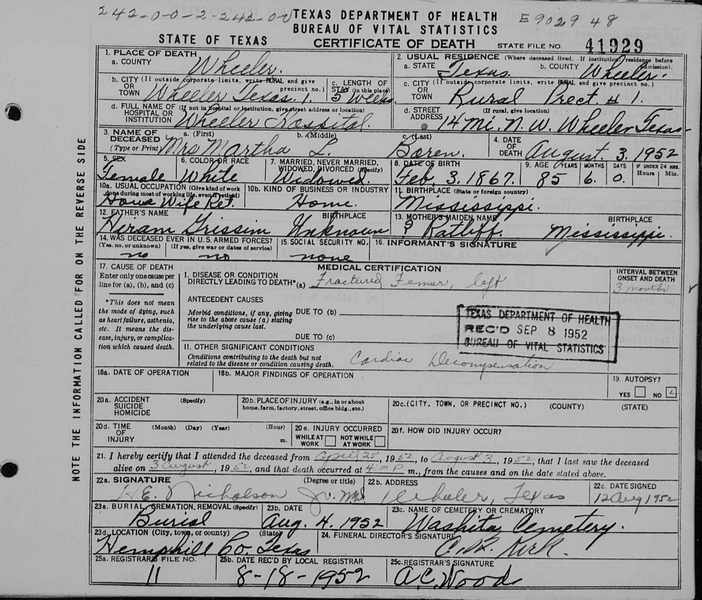 242-0-0-2-242-0-0 TEXAS DEPARTMENT OF HEALTH E9029 48
BUREAU OF VITAL STATISTICS
STATE OF TEXAS CERTIFICATE OF DEATH STATE FILE NO. 41929
1. PLACE OF DEATH 2. USUAL RESIDENCE (Where deceased lived. If institution, residence before admission).
a. COUNTY Wheeler a. STATE Texas b. COUNTY Wheeler
b. CITY (If outside corporate limits, write RURAL and give precinct no.) OR TOWN Wheeler Texas c. LENGTH OF STAY (in this place) c. CITY (If outside corporate limits, write RURAL and give precinct no.) OR TOWN Rural Prect # 1.
d. FULL NAME OF (If not in hospital or institution, give street address or location) HOSPITAL OR INSTITUTION Wheeler Hospital d. STREET ADDRESS (If rural, give location) 14 Mi. N.W. Wheeler Texas
3. NAME OF DECEASED (Type or Print) a. (First) Mrs Martha b. (Middle) L. c. (Last) 4. DATE OF DEATH August 3, 1952
5. SEX Female 6. COLOR OR RACE White 7. MARRIED, NEVER MARRIED, WIDOWED, DIVORCED (Specify) Widowed 8. DATE OF BIRTH Feb. 3, 1867. 9. AGE YEARS 85 MONTHS 6 DAYS 0 IF UNDER 24 HRS. Hours Min.
10a. USUAL OCCUPATION (Give kind of work done during most of working life, even if retired) House Wife Ret. 10b. KIND OF BUSINESS OR INDUSTRY Home. 11. BIRTHPLACE (State or foreign country) Mississippi.
12. FATHER'S NAME Hiram Grissim BIRTHPLACE Unknown 13. MOTHER'S MAIDEN NAME ? Ratliff BIRTHPLACE Mississippi.
14. WAS DECEASED EVER IN U.S. ARMED FORCES? (Yes, no, or unknown) no (If yes, give war or dates of service) no 15. SOCIAL SECURITY NO. none 16. INFORMANT'S SIGNATURE
17. CAUSE OF DEATH MEDICAL CERTIFICATION INTERVAL BETWEEN ONSET AND DEATH
Enter only one cause per line for (a), (b), and (c) I. DISEASE OR CONDITION DIRECTLY LEADING TO DEATH* (a) Fractured Femur, left 3 months
*This does not mean the mode of dying, such as heart failure, asthenia, etc. It means the disease, injury, or complication which caused death. ANTECEDENT CAUSES
Morbid conditions, if any, giving rise to the above cause (a) stating the underlying cause last. DUE TO (b)
DUE TO (c)
TEXAS DEPARTMENT OF HEALTH
REC'D SEP 8 1952
BUREAU OF VITAL STATISTICS
II. OTHER SIGNIFICANT CONDITIONS
Conditions contributing to the death but not related to the disease or condition causing death. Cardiac Decompensation
18a. DATE OF OPERATION 18b. MAJOR FINDINGS OF OPERATION 19. AUTOPSY?
YES NO
20a. ACCIDENT SUICIDE HOMICIDE (Specify) 20b. PLACE OF INJURY (e.g., in or about home, farm, factory, street, office bldg., etc.) 20c. (CITY, TOWN, OR PRECINCT NO.) (COUNTY) (STATE)
20d. TIME OF INJURY (Month) (Day) (Year) (Hour) m. 20e. INJURY OCCURRED WHILE AT WORK NOT WHILE AT WORK 20f. HOW DID INJURY OCCUR?
21. I hereby certify that I attended the deceased from April 25, 1952, to August 3, 1952, that I last saw the deceased
alive on 3 August, 1952, and that death occurred at 4 P m., from the causes and on the date stated above.
22a. SIGNATURE H.E. Nicholson Jr. MD (Degree or title) 22b. ADDRESS Wheeler, Texas 22c. DATE SIGNED 12 Aug 1952
23a. BURIAL, CREMATION, REMOVAL (Specify) Burial 23b. DATE Aug. 4, 1952 23c. NAME OF CEMETERY OR CREMATORY Washita Cemetery.
23d. LOCATION (City, town, or county) (State) Hemphill Co. Texas 24. FUNERAL DIRECTOR'S SIGNATURE Kirk.
25a. REGISTRAR'S FILE NO. 11 25b. DATE REC'D BY LOCAL REGISTRAR 8-18-1952 25c. REGISTRAR'S SIGNATURE A.C. Wood
NOTE THE INFORMATION CALLED FOR ON THE REVERSE SIDE